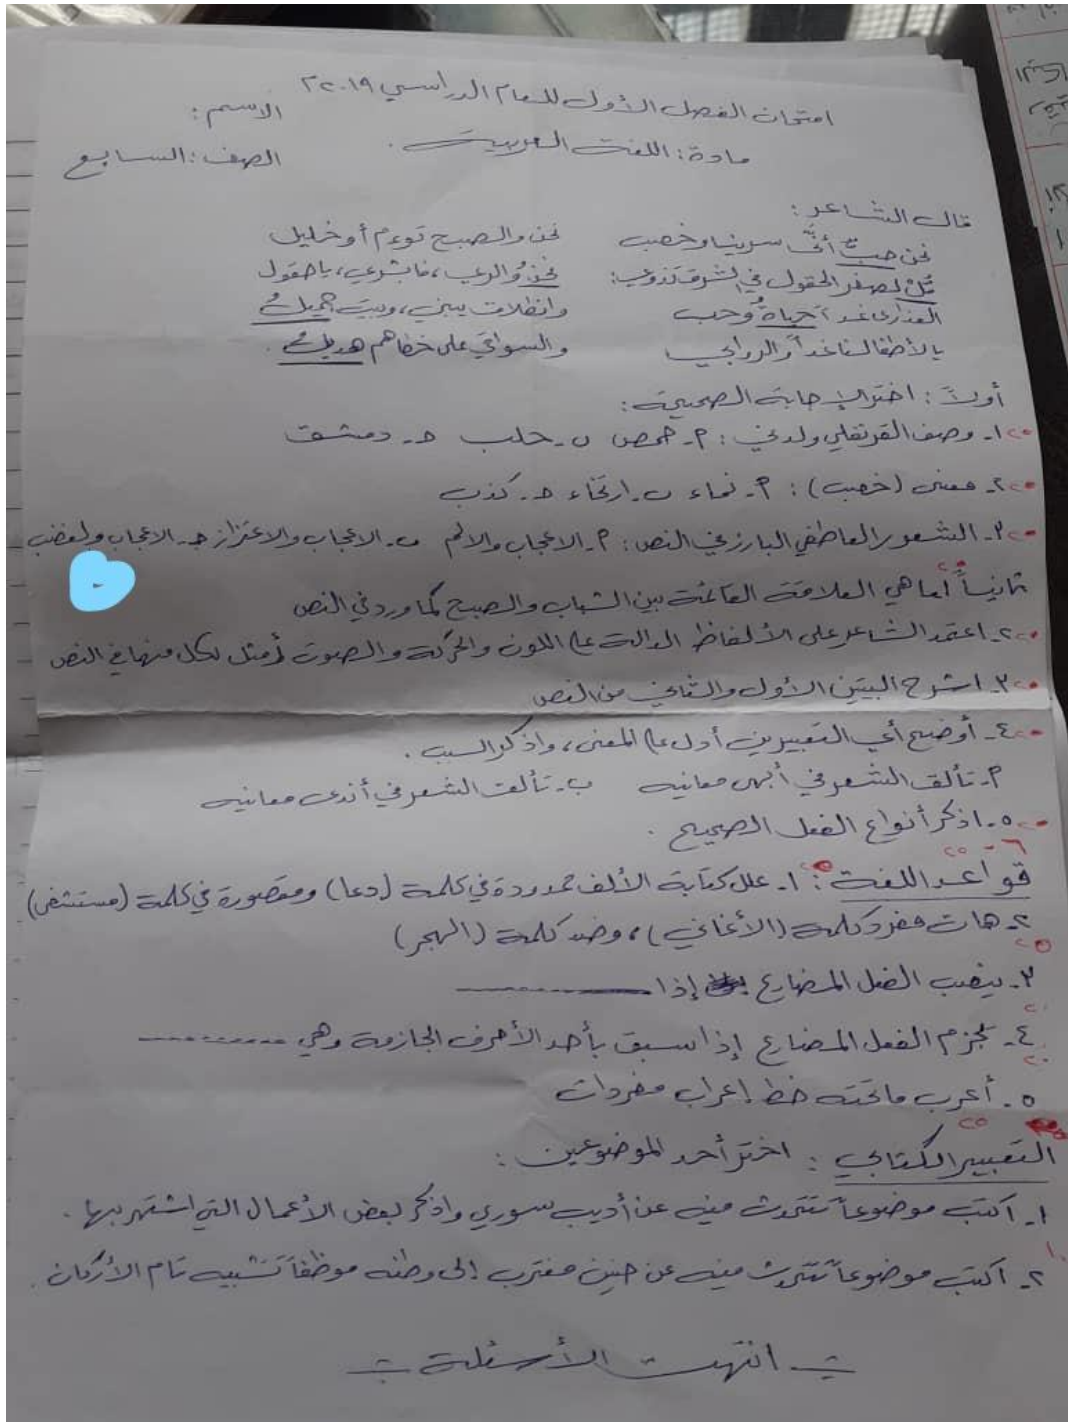 امتحان الفصل الأول للعام الدراسي ٢٠١٩
الاسم:
مادة: اللغة العربية.
الصف: السابع
قال الشاعر:
نحن حبٌّ أنّى سرينا وخصب نحن والصبح توءم أو خليل
قُلْ لصفر الحقول في الشرق تذوي: نحن والريّ، فابشري، يا حقول
العذارى غداً حياةٌ وحب وانطلاق يبني، وبيت جميلُ
يا لأطفالنا غداً والروابي والسواقي على خطاهم هديلُ.
أولاً: اختر الإجابة الصحيحة:
١- وصفي القرنفلي ولد في: أ- حمص ب- حلب ج- دمشق
٢- معنى (خصب): أ- نماء ب- ارتخاء ج- كذب
٣- الشعور العاطفي البارز في النص: أ- الاعجاب والالم ب- الاعجاب والاعتزاز ج- الاعجاب والغضب
ثانياً ١- ما هي العلاقة القائمة بين الشباب والصبح كما ورد في النص
٢- اعتمد الشاعر على الألفاظ الدالة على اللون والحركة والصوت أمثل لكل منها في النص
٣- اشرح البيتين الأول والثاني من النص
٤- أوضح أي التعبيرين أدل على المعنى، واذكر السبب.
أ- تألق الشعر في أبهى معانيه ب- تألق الشعر في أندى معانيه
٥- اذكر أنواع الفعل الصحيح.
قواعد اللغة: ١- علل كتابة الألف ممدودة في كلمة (دعا) ومقصورة في كلمة (مستشفى)
٢- هات مفرد كلمة (الأغاني)، وضد كلمة (الهجر)
٣- ينصب الفعل المضارع إذا ..........
٤- يجزم الفعل المضارع إذا سبق بأحد الأحرف الجازمة وهي ..........
٥- أعرب ما تحته خط إعراب مفردات
التعبير الكتابي: اختر أحد الموضوعين:
١- اكتب موضوعاً تتحدث فيه عن أديب سوري واذكر بعض الأعمال التي اشتهر بها.
٢- اكتب موضوعاً تتحدث فيه عن حنين مغترب إلى وطنه موظفاً تشبيه تام الأركان.
انتهت الأسئلة